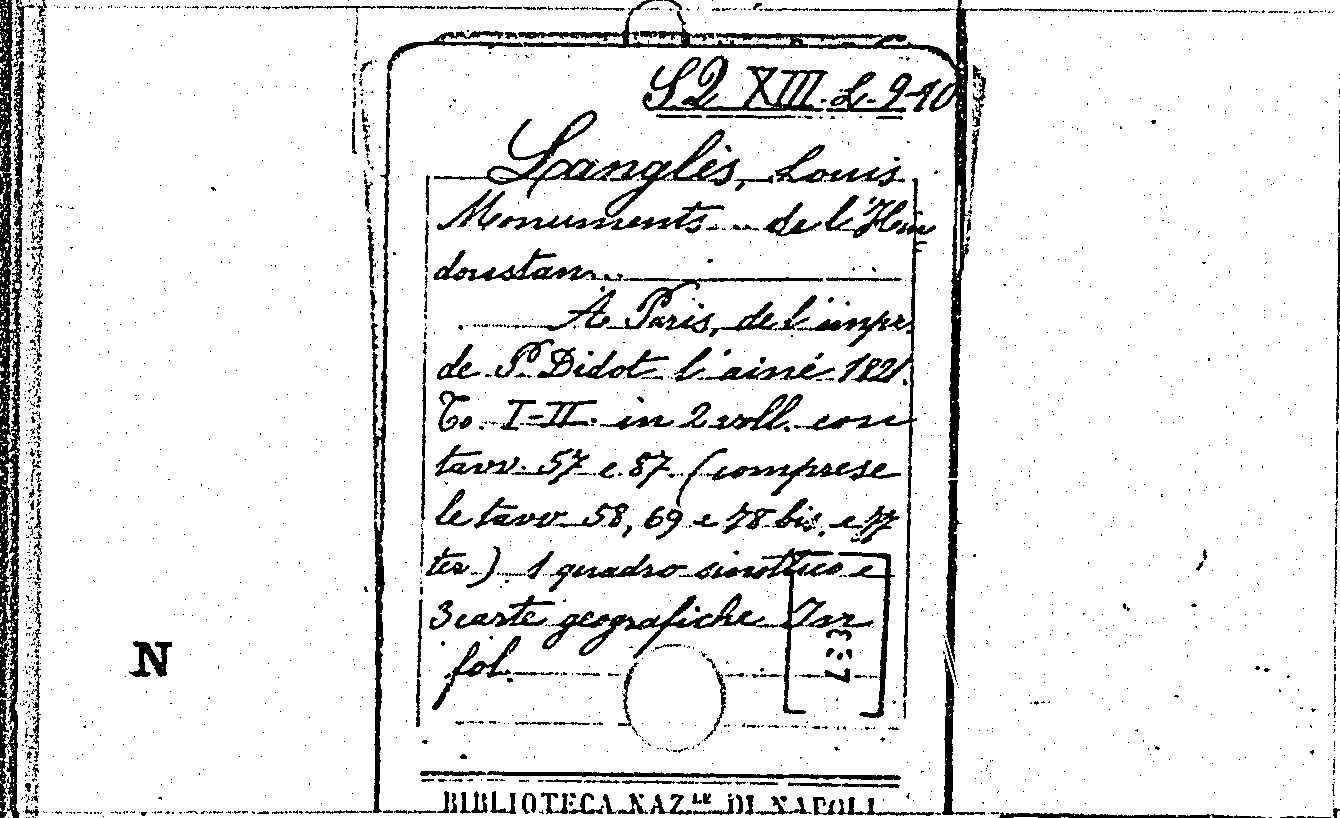 S2 XIII. L. 9-10
Langlès, Louis
Monuments... de l'Hin
doustan...
A Paris, de l'impr.
de P. Didot l'ainé 1821.
To. I-II. in 2 voll. con
tavv. 57 e 87. (comprese
le tavv 58, 69 e 78 bis. e 77
ter) 1 quadro sinottico e
3 carte geografiche In
fol.
N
BIBLIOTECA NAZ.LE DI NAPOLI